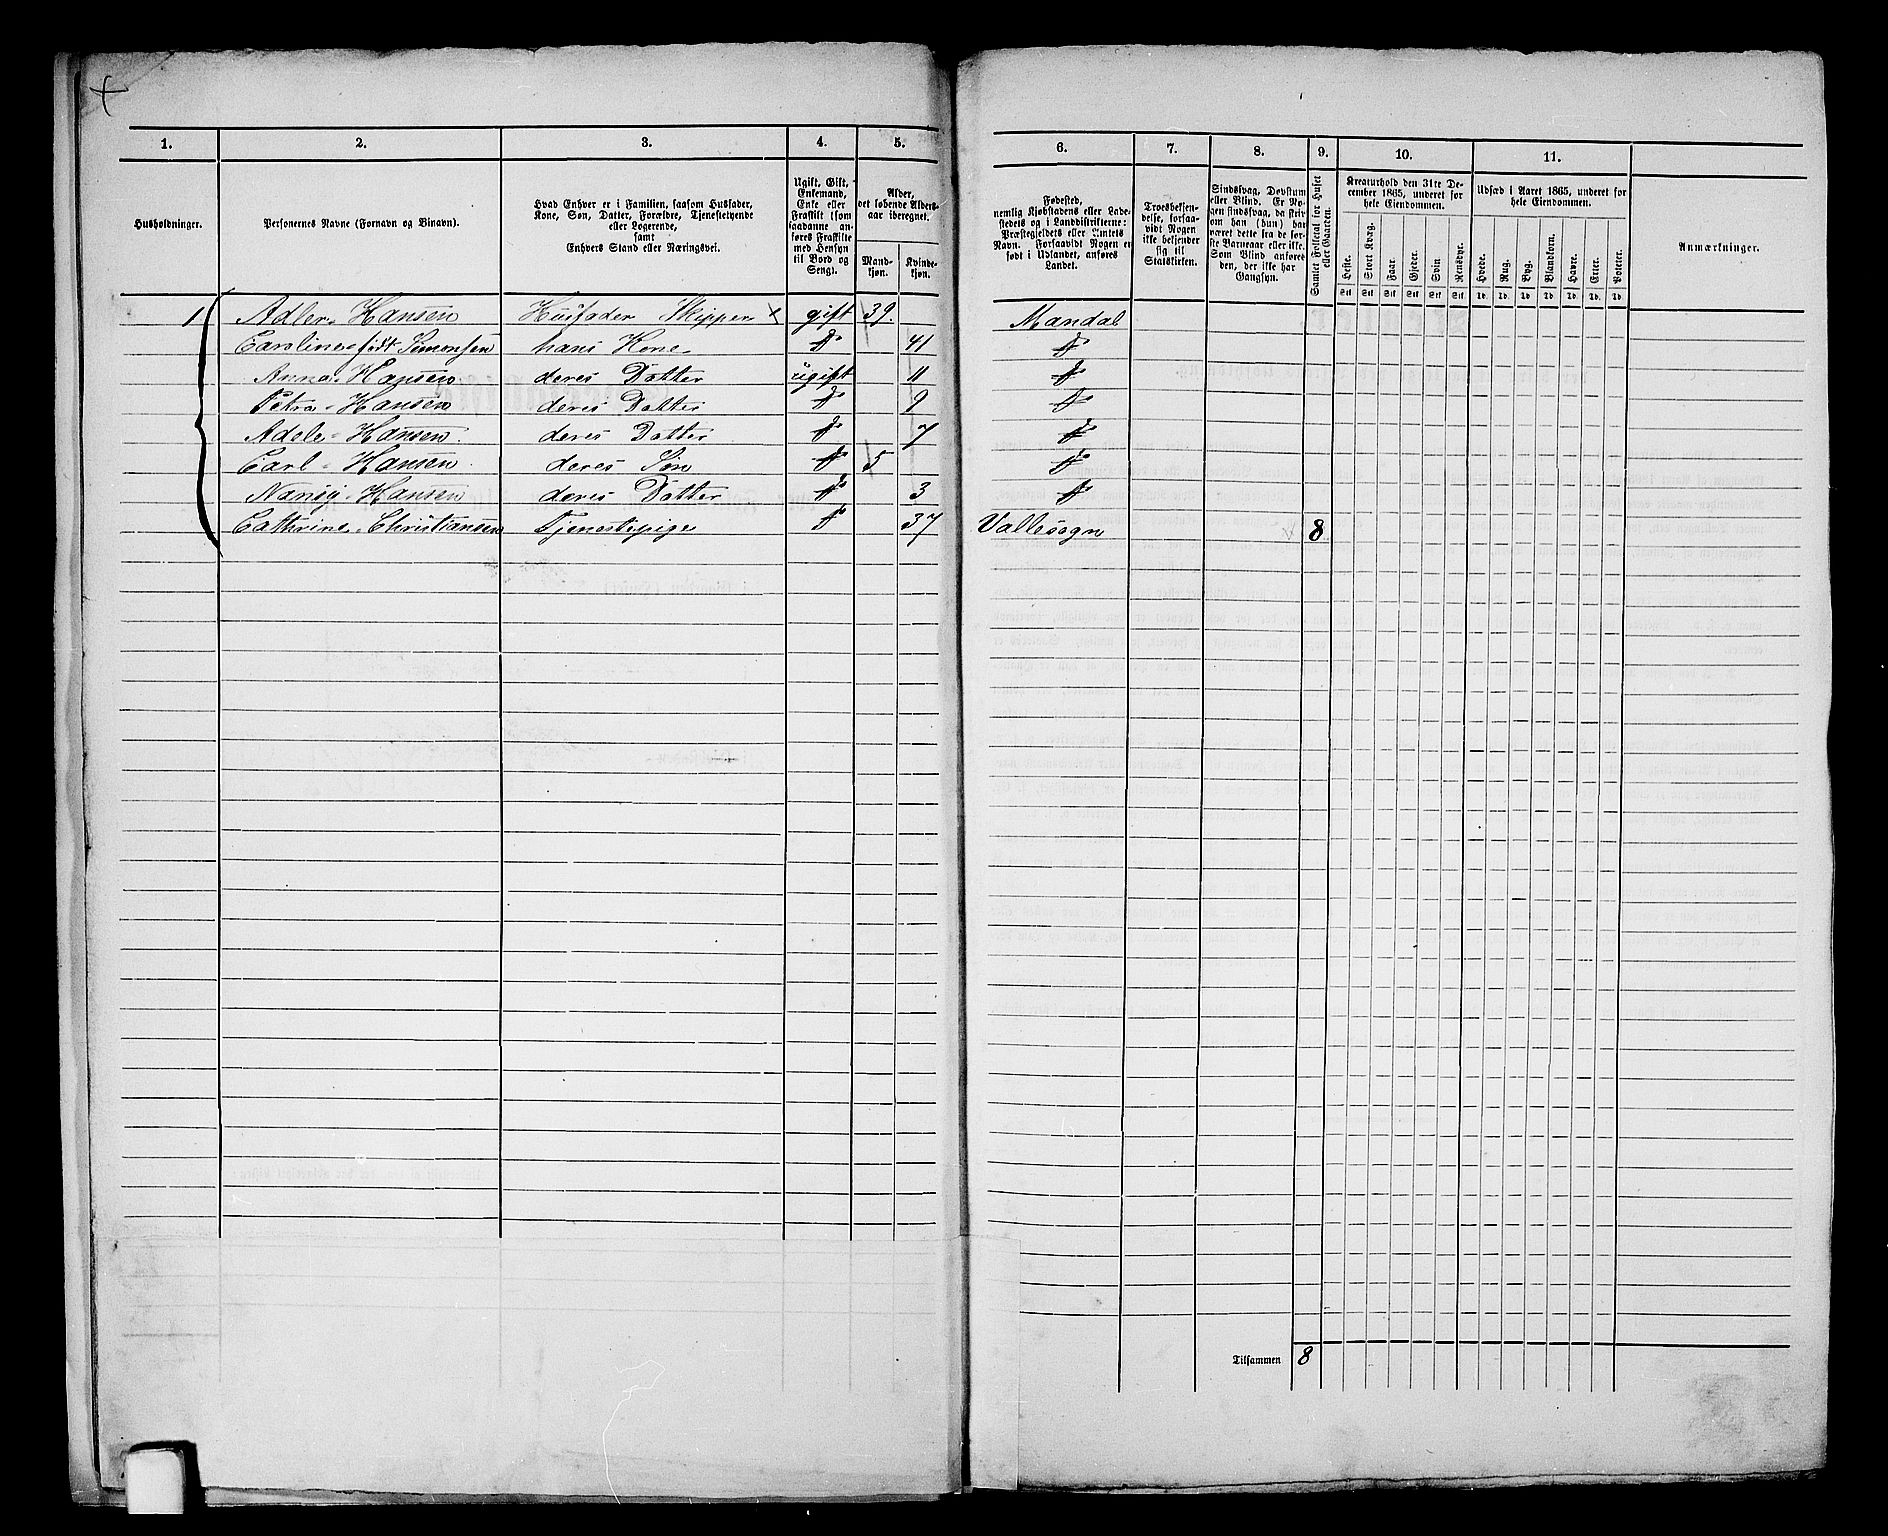 1. 2. 3. 4. 5.
Husholdninger.
Personernes Navne (Fornavn og Binavn).
Hvad Enhver er i Familien, saasom Husfader,
Kone, Søn, Datter, Forældre, Tjenestetyende
eller Logerende,
samt
Enhvers Stand eller Næringsvei.
Ugift, Gift,
Enkemand,
Enke eller
Fraskilt (som
saadanne an-
føres Fraskilte
med Hensyn
til Bord og
Seng).
Alder,
det løbende Alders-
aar iberegnet.
Mand-
kjøn.
Kvinde-
kjøn.
1 Adler Hansen Husfader Skipper x gift 39.
Caroline født Simonsen hans Kone do 41
Anna Hansen deres Datter ugift 11
Petra Hansen deres Datter do 9
Adele Hansen deres Datter do 7
Carl Hansen deres Søn do 5
Hansen deres Datter do 3
Cathrine Christiansen Tjenestepige do 37
6. 7. 8. 9. 10. 11.
Fødested,
nemlig Kjøbstadens eller Lade-
stedets og i Landdistrikterne:
Præstegjeldets eller Amtets
Navn. Forsaavidt Nogen er
født i Udlandet, anføres
Landet.
Troesbekjen-
delse, forsaa-
vidt Nogen
ikke bekjender
sig til
Statskirken.
Sindssvag, Døvstum
eller Blind. Er No-
gen sindssvag, da skriv
om han (hun) har
været dette fra de før-
ste Barneaar eller ikke.
Som Blind anføres
den, der ikke har
Gangsyn.
Samlet Folketal for Huset
eller Gaarden.
Kreaturhold den 31te De-
cember 1865, underet for
hele Eiendommen.
Heste. Stort Kvæg. Faar. Gjeder. Svin. Rensdyr.
Stk Stk Stk Stk Stk Stk
Udsæd i Aaret 1865, underet for
hele Eiendommen.
Hvede. Rug. Byg. Blandkorn. Havre. Erter. Poteter.
Td. Td. Td. Td. Td. Td. Td.
Anmærkninger.
Mandal
do
do
do
do
do
do
Vallesogn 8
Tilsammen 8